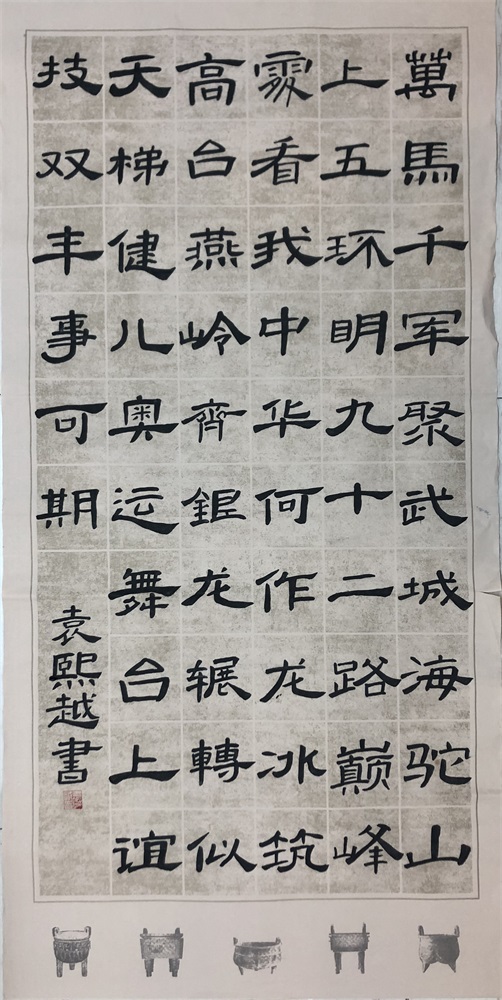 萬馬千军聚武城海驼山
上五环明九十二路巅峰
霎看我中华何作龙冰筑
高台燕岭齊銀龙辗轉似
天梯健儿奥运舞台上谊
技双丰事可期
袁熙越書